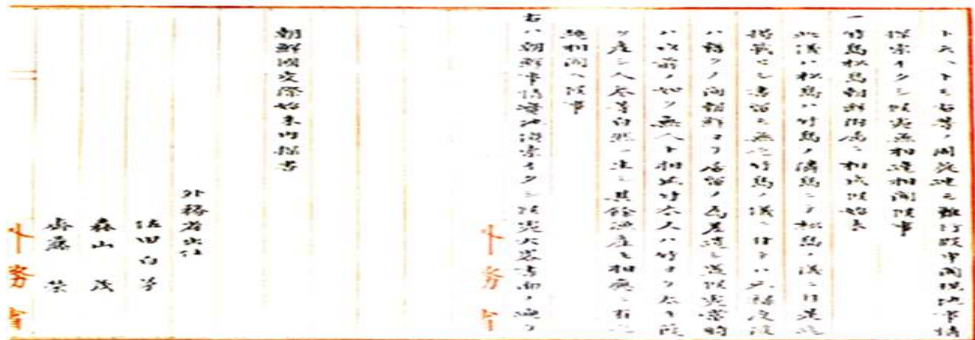 探索イタシ候処無相違相聞候事
一竹島松島朝鮮附属ニ相成候始末
此儀ハ松島ハ竹島ノ隣島ニテ松島ノ儀ニ付是迄
掲載セシ書留モ無之竹島ノ儀ニ付テハ元禄度後
ハ暫クノ間朝鮮ヨリ居留ノ為差遣シ置候処当時
ハ以前ノ如ク無人ト相成竹木又ハ竹ヨリ太キ葭
ヲ産シ人参等自然ニ生シ其餘漁産モ相応ニ有之
趣相聞ヘ候事
右ハ朝鮮事情実地偵索イタシ候処大略書面ノ通リ
朝鮮國交際始末内探書
外務省出仕
佐田白茅
森山茂
斎藤榮
外務省